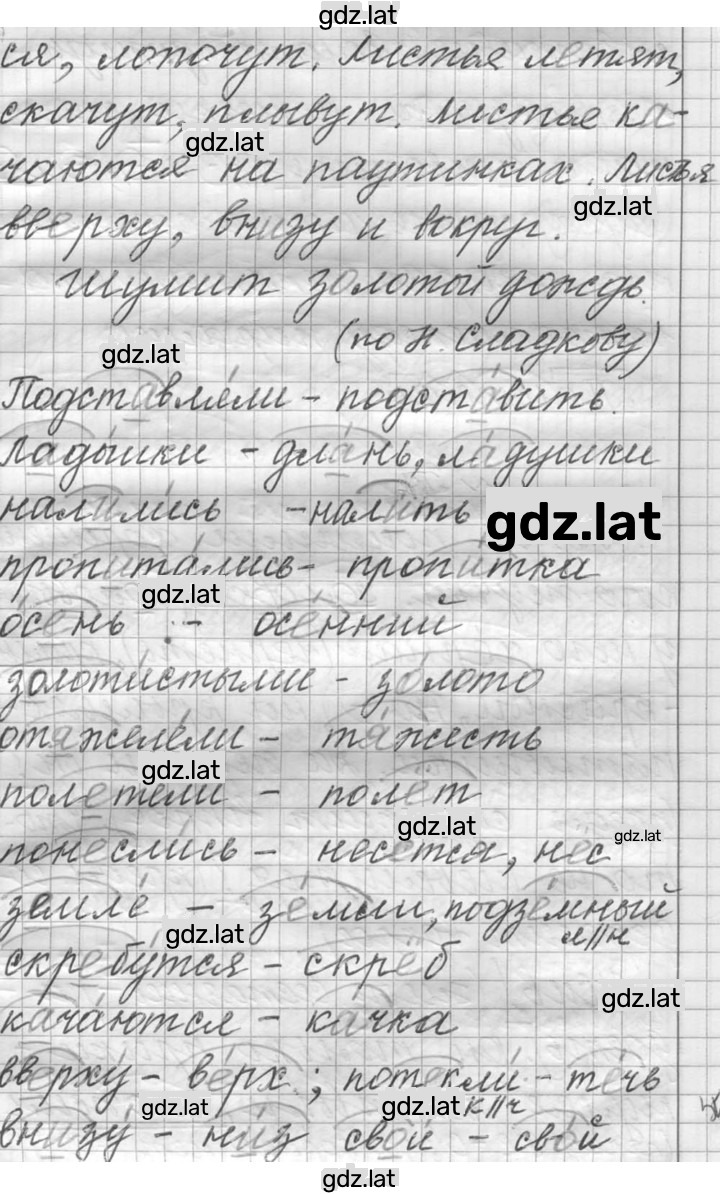 gdz.lat
ся, лопочут. Листья летят,
скачут, плывут. Листье ка-
gdz.lat
чаются на паутинках. Листья
gdz.lat
вверху, внизу и вокруг.
Шумит золотой дождь.
(по Н. Сладкову)
gdz.lat
Подставляли - подставить.
Ладошки - длань, ладушки
налились - налить
gdz.lat
пропитались - пропитка
gdz.lat
осень - осенний
золотистыми - золото
отяжелели - тяжесть
gdz.lat
полетели - полёт
gdz.lat
gdz.lat
понеслись - несётся, нёс
земле - земли, подземный
gdz.lat
м//н
скребутся - скрёб
gdz.lat
качаются - качка
вверху - верх; потекли - течь
gdz.lat
gdz.lat
к//ч
внизу - низ свои - свой
gdz.lat